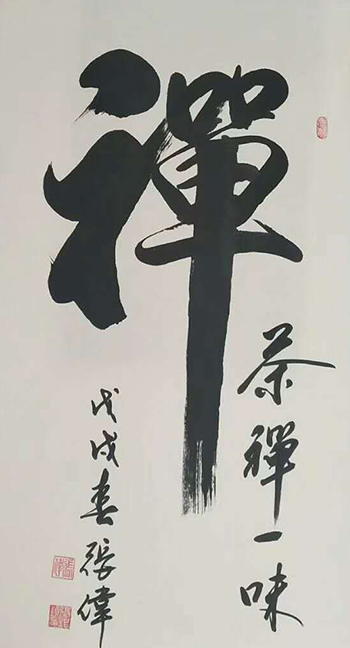 禪
茶禪一味
戊戌春張偉